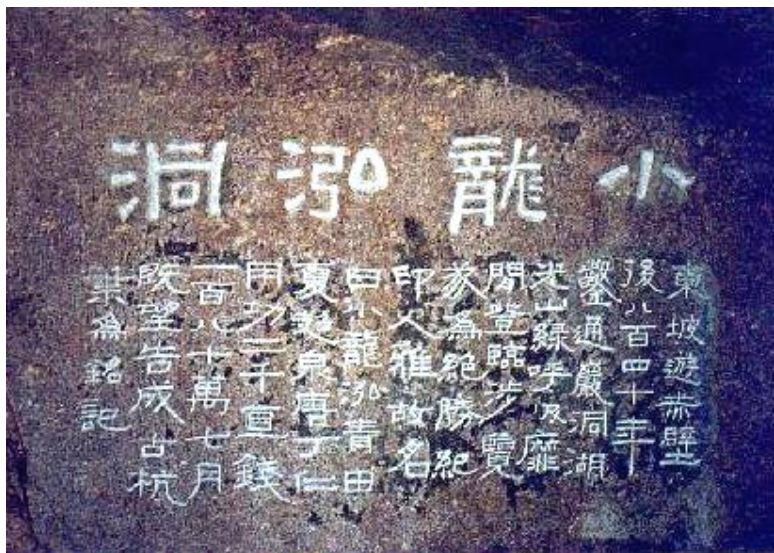 小龍泓洞
東坡遊赤壁
後八百四十年
鑿通巖洞湖
光山緑呼吸靡
閒登臨涉覽
遂爲絕勝紀
印人雅故名
曰小龍泓青田
夏超泉唐丁仁
用功二千直錢
一百八十萬七月
既望告成古杭
葉爲銘記